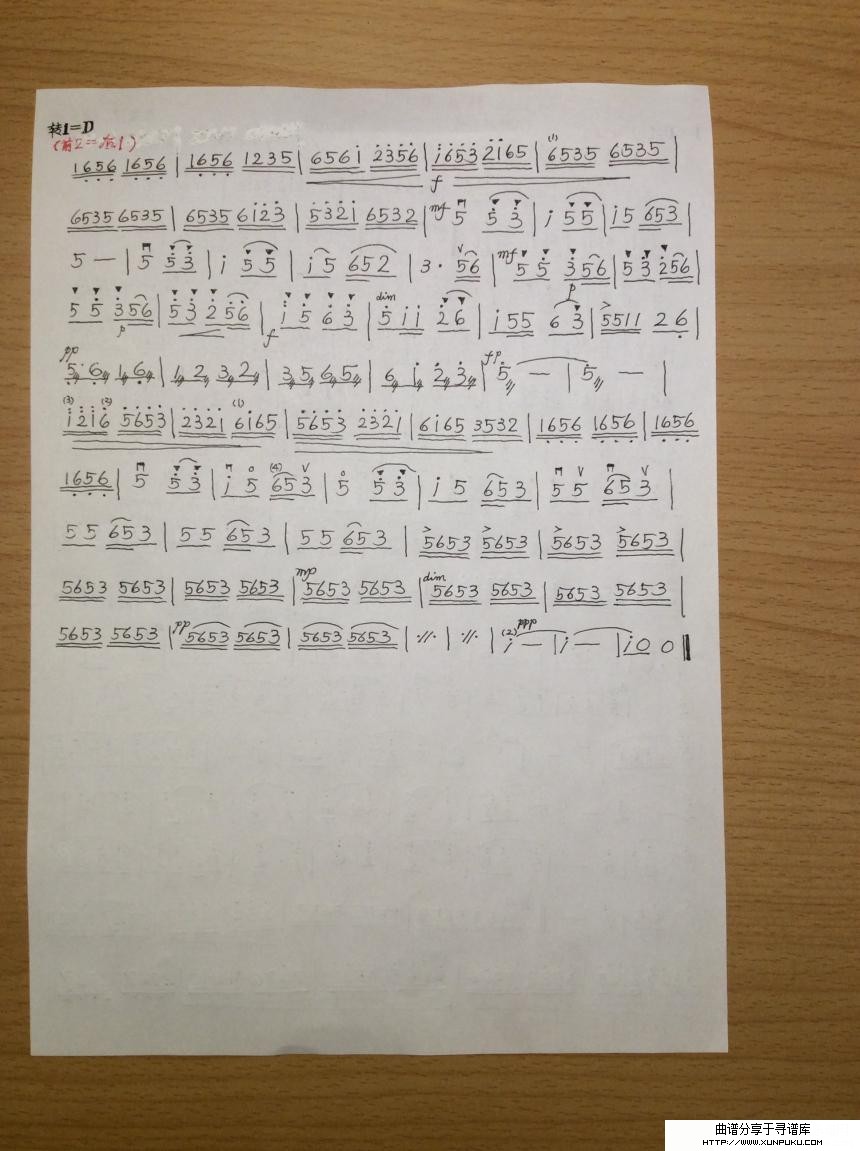 转1=D
(前2=后1)
1656 1656 | 1656 1235 | 6561 2356 | 1653 2165 | 6535 6535 |
f
(1)
6535 6535 | 6535 6123 | 5321 6532 | mf 5 5 3 | i 5 5 | i 5 653 |
5 — | 5 5 3 | i 5 5 | i 5 652 | 3· 56 | mf 5 5 356 | 53 256 |
p
5 5 356 | 53 256 | i 5 6 3 | dim 5 i i 2 6 | i 55 6 3 | >5511 2 6 |
p f
pp 5 6 1 6 | 1 2 3 2 | 3 5 6 5 | 6 1 2 3 | fp 5 — | 5 — |
(3) (2) (1)
1216 5653 | 2321 6165 | 5653 2321 | 6165 3532 | 1656 1656 | 1656
1656 | 5 5 3 | i 5 (4) 653 | 5 5 3 | i 5 653 | 5 5 653 |
5 5 653 | 5 5 653 | 5 5 653 | >5653 >5653 | >5653 >5653 |
5653 5653 | 5653 5653 | mp 5653 5653 | dim 5653 5653 | 5653 5653 |
5653 5653 | pp 5653 5653 | 5653 5653 | ·//· | ·//· | (2) ppp i — | i — | i 0 0 ‖
曲谱分享于寻谱库
HTTP://WWW.XUNPUKU.COM